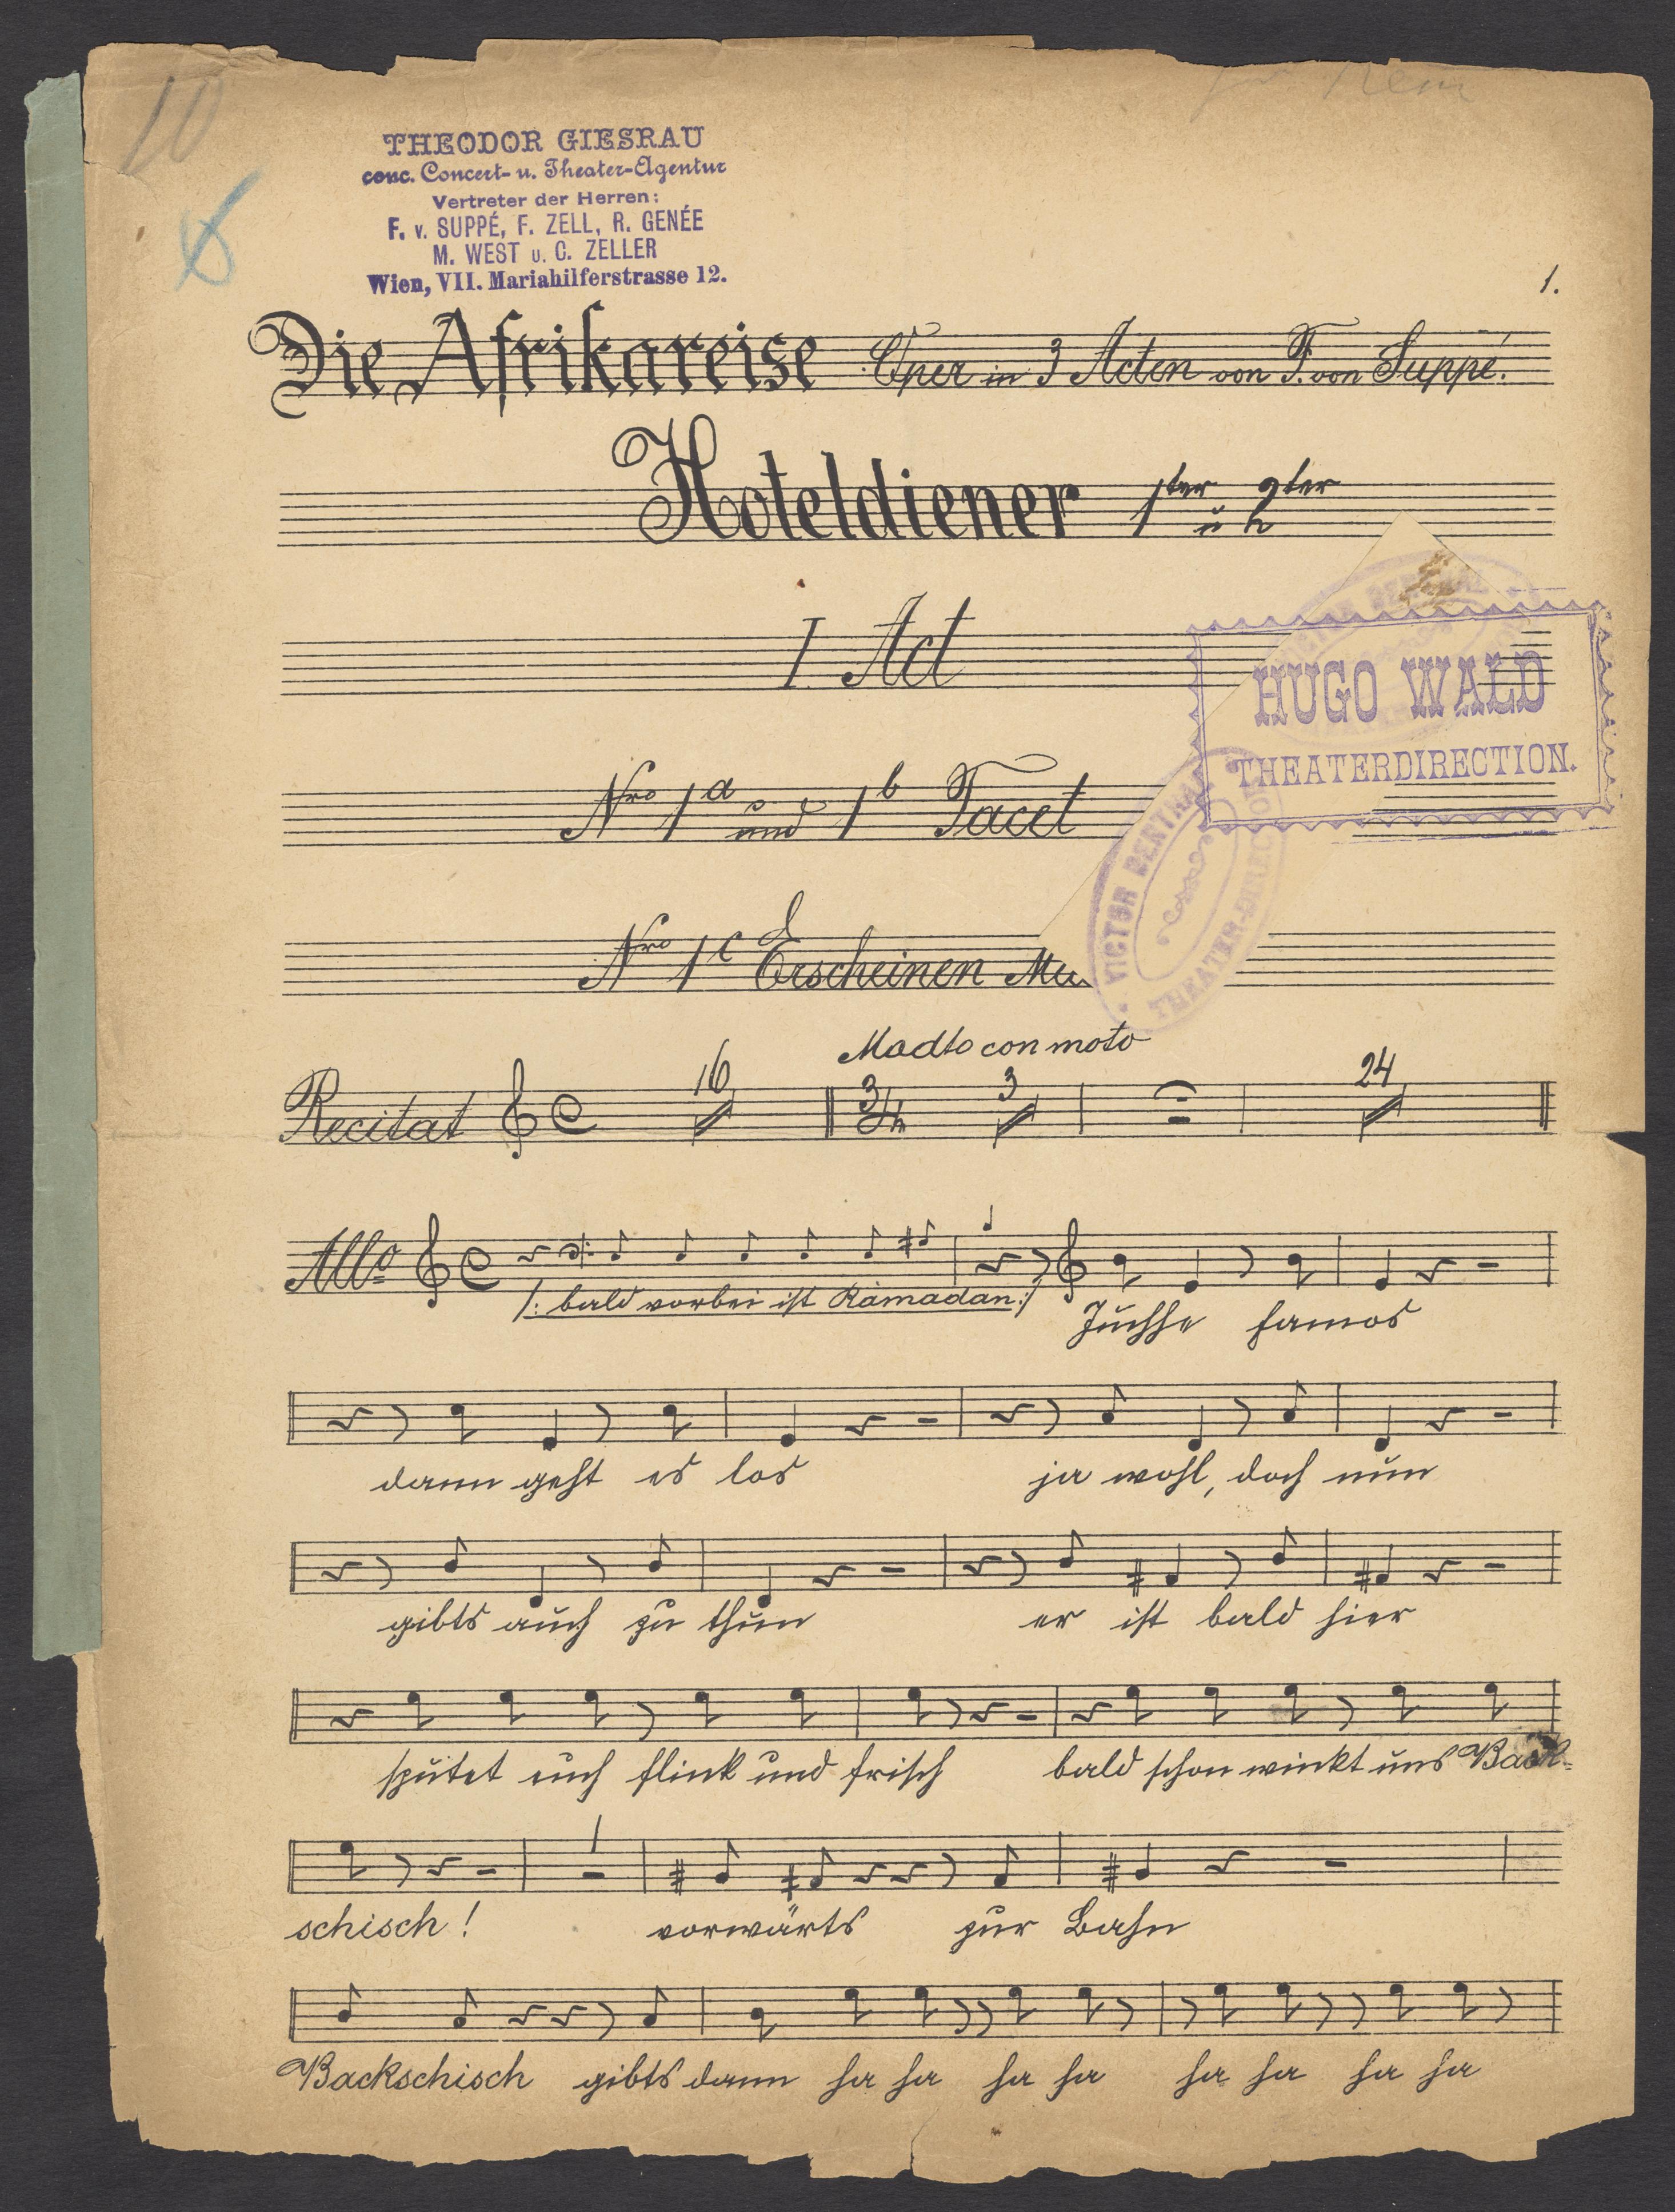 10
THEODOR GIESRAU
conc. Concert- u. Theater-Agentur
Vertreter der Herren:
F. v. SUPPÉ, F. ZELL, R. GENÉE
M. WEST u. C. ZELLER
Wien, VII. Mariahilferstrasse 12.
1.
Die Afrikareise Oper in 3 Acten von F. von Suppé.
Hoteldiener 1ter u 2ter
I. Act
HUGO WALD
THEATERDIRECTION.
Nro 1a und 1b Tacet
VICTOR BERTHAL THEATER-DIRECTION
Nro 1c Erscheinen
Modto con moto
Recitat 16 3/4 3 24
Allo
/: bald vorbei ist Ramadan :/ Juchhe famos
dann geht es los ja wohl, doch nun
gibts auch zu thun er ist bald hier
sputet euch flink und frisch bald schon winkt uns Back-
1
schisch! vorwärts zur Bahn
Backschisch gibts dann ha ha ha ha ha ha ha ha